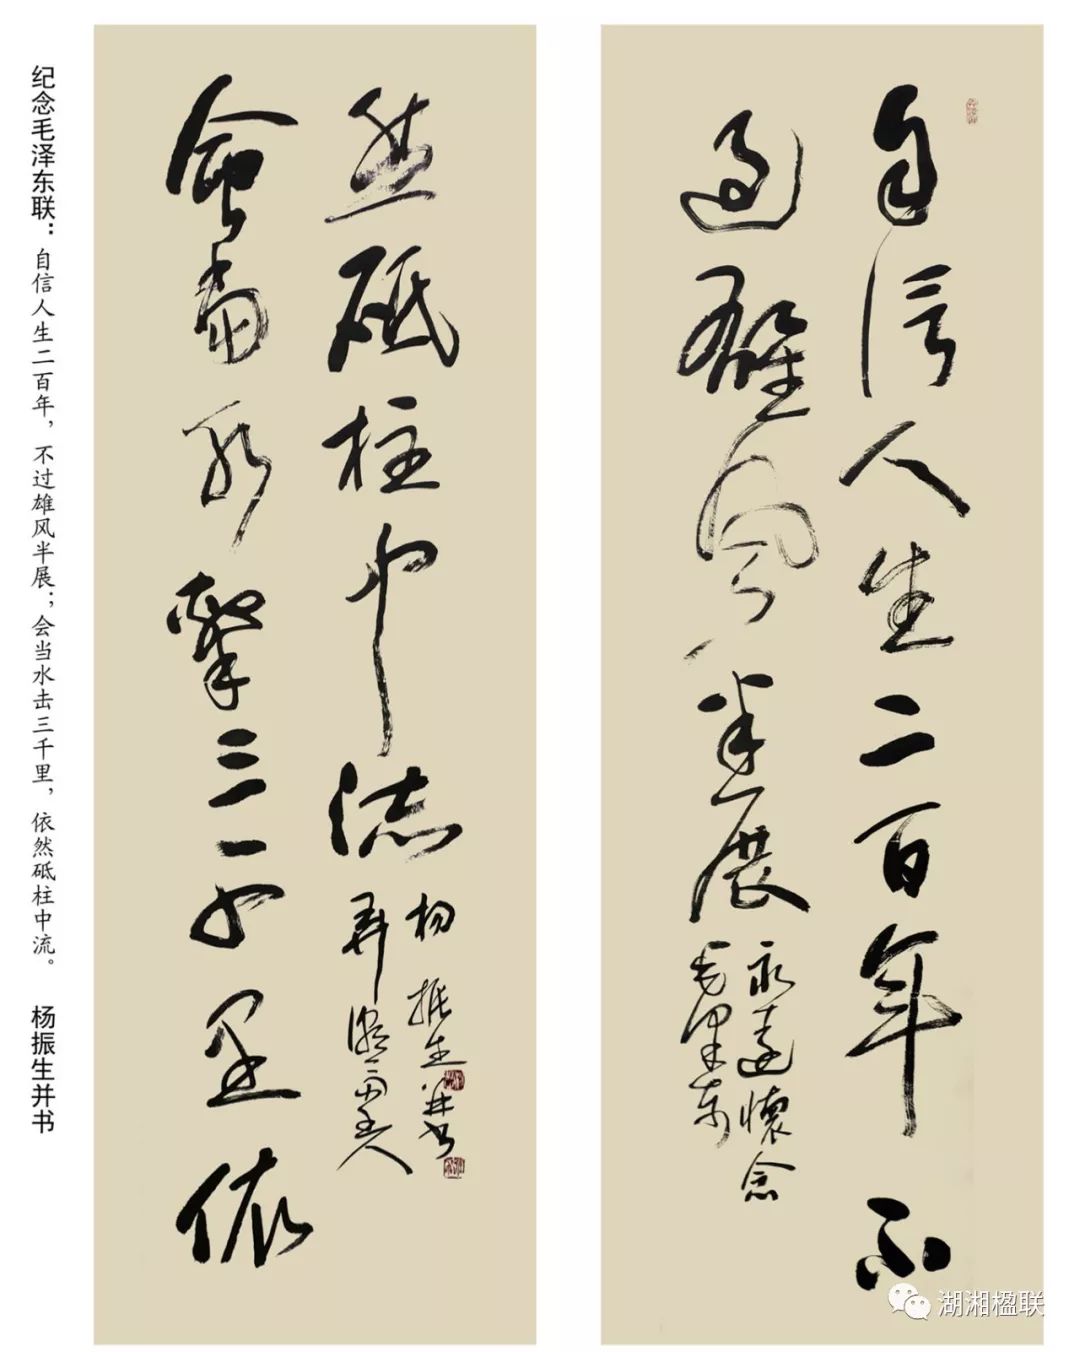 自信人生二百年不
過雄風半展
永遠懷念
毛澤東
會當水擊三千里依
然砥柱中流
楊振生並書
纪念毛泽东联：自信人生二百年，不过雄风半展；会当水击三千里，依然砥柱中流。 杨振生并书
湖湘楹联